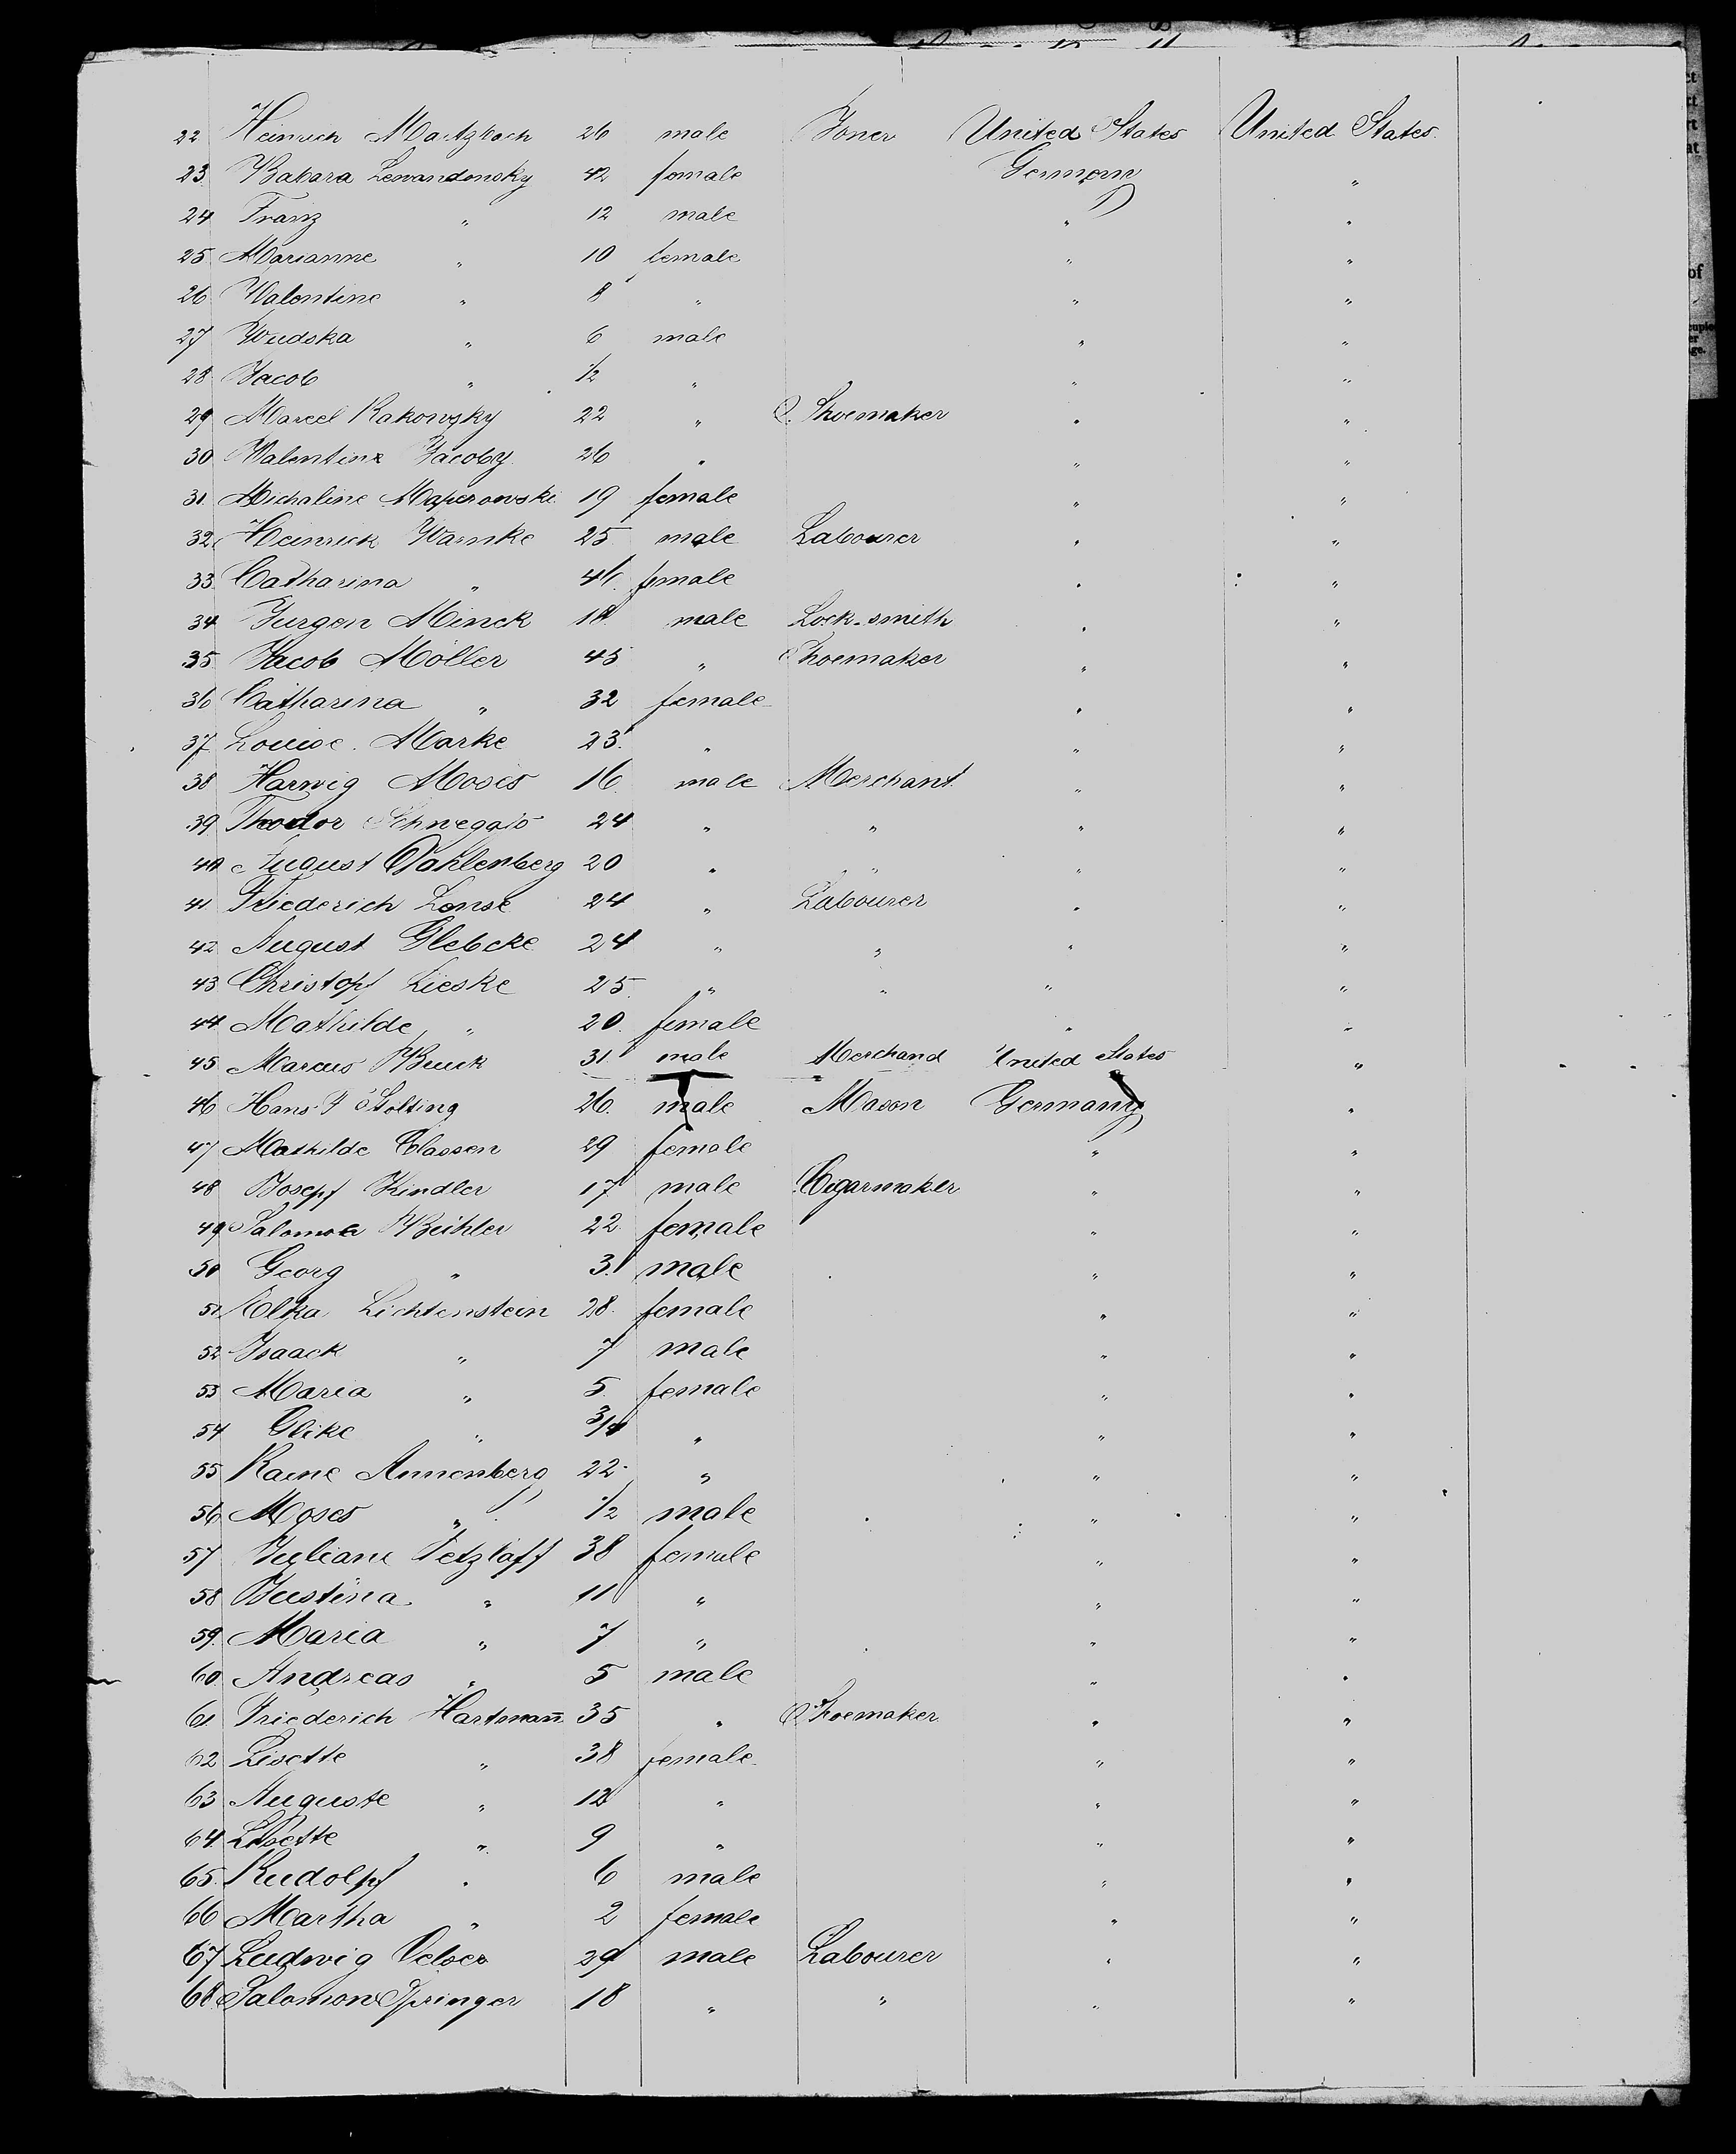 22 Heinrich Maitzbach 26 male Joner United States United States
23 Babara Lewandowsky 42 female Germany "
24 Franz " 12 male " "
25 Marianne " 10 female " "
26 Valentine " 8 " " "
27 Wudska " 6 male " "
28 Jacob " 1/2 " " "
29 Marcel Rakowsky 22 " Shoemaker " "
30 Valentine Jacoby 26 " " "
31 Michaline Maperowski 19 female " "
32 Heinrick Warnke 25 male Labourer " "
33 Catharina " female " "
34 Jurgen Minck male Lock-smith " "
35 Jacob Möller 45 " Shoemaker " "
36 Catharina " 32 female " "
37 Louise Marke 23 " " "
38 Harwig Moses 16 male Merchant " "
39 Theodor 24 " " " "
40 August Dahlenberg 20 " " " "
41 Friederich Lense 24 " Labourer " "
42 August Glebcke 24 " " " "
43 Christopf Lieske 25 " " " "
44 Mathilde " 20 female " "
45 Marcus Buck 31 male Merchand United States "
46 Hans F Stölting 26 male Mason Germany "
47 Mathilde Classen 29 female " "
48 Josepf Kindler 17 male Cigarmaker " "
49 Salomea Bühler 22 female " "
50 Georg " 3 male " "
51 Elka Lichtenstein 28 female " "
52 Isaack " 7 male " "
53 Maria " 5 female " "
54 Glike " 3/4 " " "
55 Raine Annenberg 22 " " "
56 Moses " 1/2 male " "
57 Juliane Tetzlaff 38 female " "
58 Justina " 11 " " "
59 Maria " 7 " " "
60 Andreas " 5 male " "
61 Friederich Hartmann 35 " Shoemaker " "
62 Lisette " 38 female " "
63 Auguste " 12 " " "
64 Lisette " 9 " " "
65 Rudolpf " 6 male " "
66 Martha " 2 female " "
67 Ludwig Velser 29 male Labourer " "
68 Salomon Springer 18 " " " "